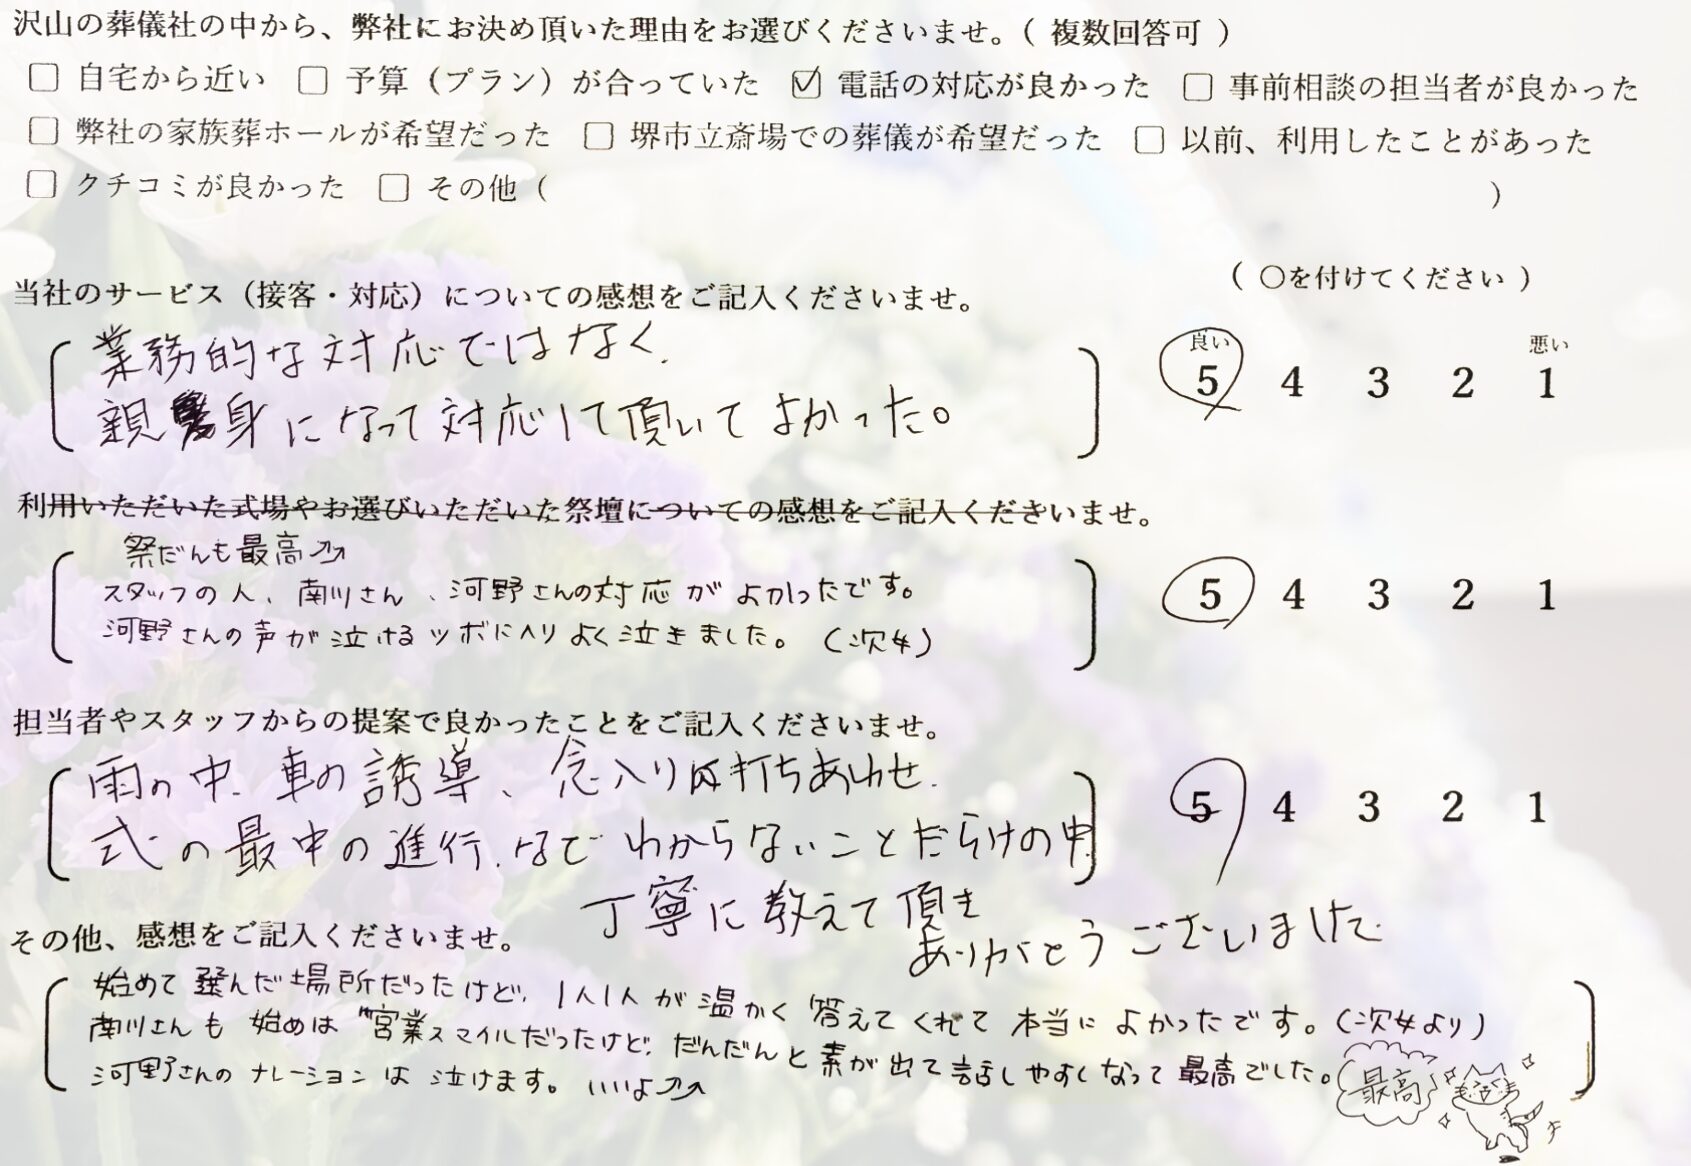 沢山の葬儀社の中から、弊社にお決め頂いた理由をお選びくださいませ。( 複数回答可 )
□ 自宅から近い □ 予算（プラン）が合っていた ☑ 電話の対応が良かった □ 事前相談の担当者が良かった
□ 弊社の家族葬ホールが希望だった □ 堺市立斎場での葬儀が希望だった □ 以前、利用したことがあった
□ クチコミが良かった □ その他（ ）
当社のサービス（接客・対応）についての感想をご記入くださいませ。
( ○を付けてください )
業務的な対応ではなく、
親身になって対応して頂いてよかった。
良い 悪い
5 4 3 2 1
利用いただいた式場やお選びいただいた祭壇についての感想をご記入くださいませ。
祭だんも最高↗↗
スタッフの人、南川さん、河野さんの対応がよかったです。
河野さんの声が泣けるツボに入りよく泣きました。（次女）
5 4 3 2 1
担当者やスタッフからの提案で良かったことをご記入くださいませ。
雨の中、車の誘導、念入りな打ちあわせ、
式の最中の進行、などわからないことだらけの中
5 4 3 2 1
丁寧に教えて頂き
ありがとうございました
その他、感想をご記入くださいませ。
始めて選んだ場所だったけど、1人1人が温かく答えてくれて本当によかったです。（次女より）
南川さんも始めは"営業スマイルだったけど、だんだんと素が出て話しやすくなって最高でした。
河野さんのナレーションは泣けます。いいよ↗↗
最高